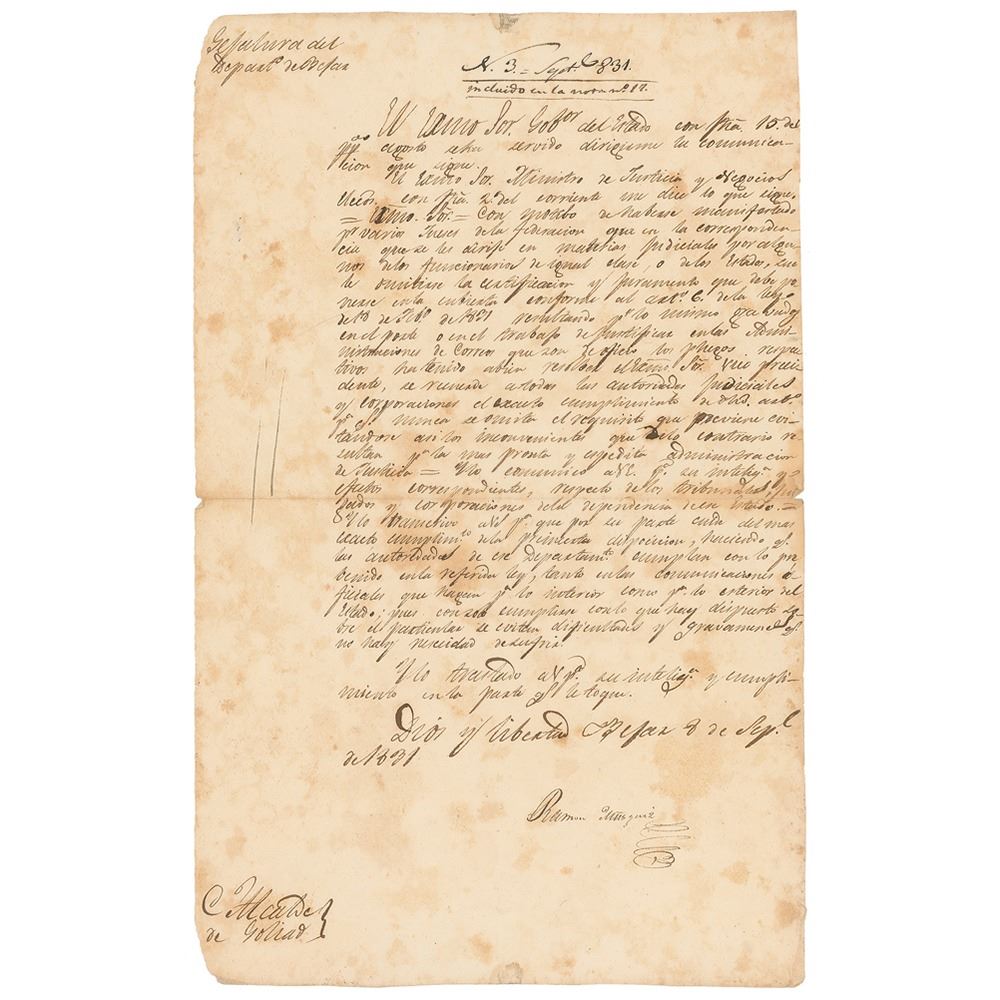 Gefatura del
Depart.o de Bejar
N. 3. = Sept.e 831.
incluido en la nota n.o 17.
El Exmo Sor. Gob.or del Estado con fha. 15. del
pp.o agosto se ha servido dirigirme la comunica-
cion que sigue.
El Exmo Sor. Ministro de Justicia y Negocios
Ecc.os con fha. 2. del corriente me dice lo que sigue.
= Exmo. Sor. = Con motibo de haberse manifestado
p.r varios Jueses de la federacion que en la corresponden-
cia que se les dirije en materias judiciales por algu-
nos de los funcionarios de igual clase, o de los Estados, sue-
le omitirse la certificacion y juramento que debe po-
nerse en la cubierta conforme al art.o 6. de la ley
de 18 de Feb.o de 1821 resultando p.r lo mismo
en el porte o en el trabajo de justificar en las Admi-
nistraciones de Correos que son de oficio los pliegos respec-
tivos ha tenido abien resolver el Exmo. Sor. Vice presi-
dente, se recuerde a todas las autoridades judiciales
y corporaciones el exacto cumplimiento de dho. art.o
p.a q.e nunca se omita el requisito que previene evi-
tandose asi los inconvenientes que delo contrario re-
sultan p.a la mas pronta y expedita administracion
de Justicia = Y lo comunico a V.E. p.a su intelig.a y
efectos correspondientes, respecto de los tribunales, juz-
gados y corporaciones dela dependencia de ese Estado. =
Y lo transcrivo a V.S. p.a que por su parte cuide del mas
exacto cumplim.to de la presente disposicion, haciendo q.e
las autoridades de ese Departam.to cumplan con lo pre-
benido en la referida ley, tanto en las comunicaciones o-
ficiales que hagan p.a lo interior como p.a lo esterior del
Estado; pues con solo cumplirse con lo que hay dispuesto so-
bre el particular se evitan dificultades y gravamenes q.e
no hay nescecidad de sufrir.
Y lo traslado a V. p.a su intelig.a y cumpli-
miento en la parte q.e le toque.
Dios y libertad Bejar 8 de Sep.e
de 1831
Ramon Musquiz
C. Alcalde
de Goliad.